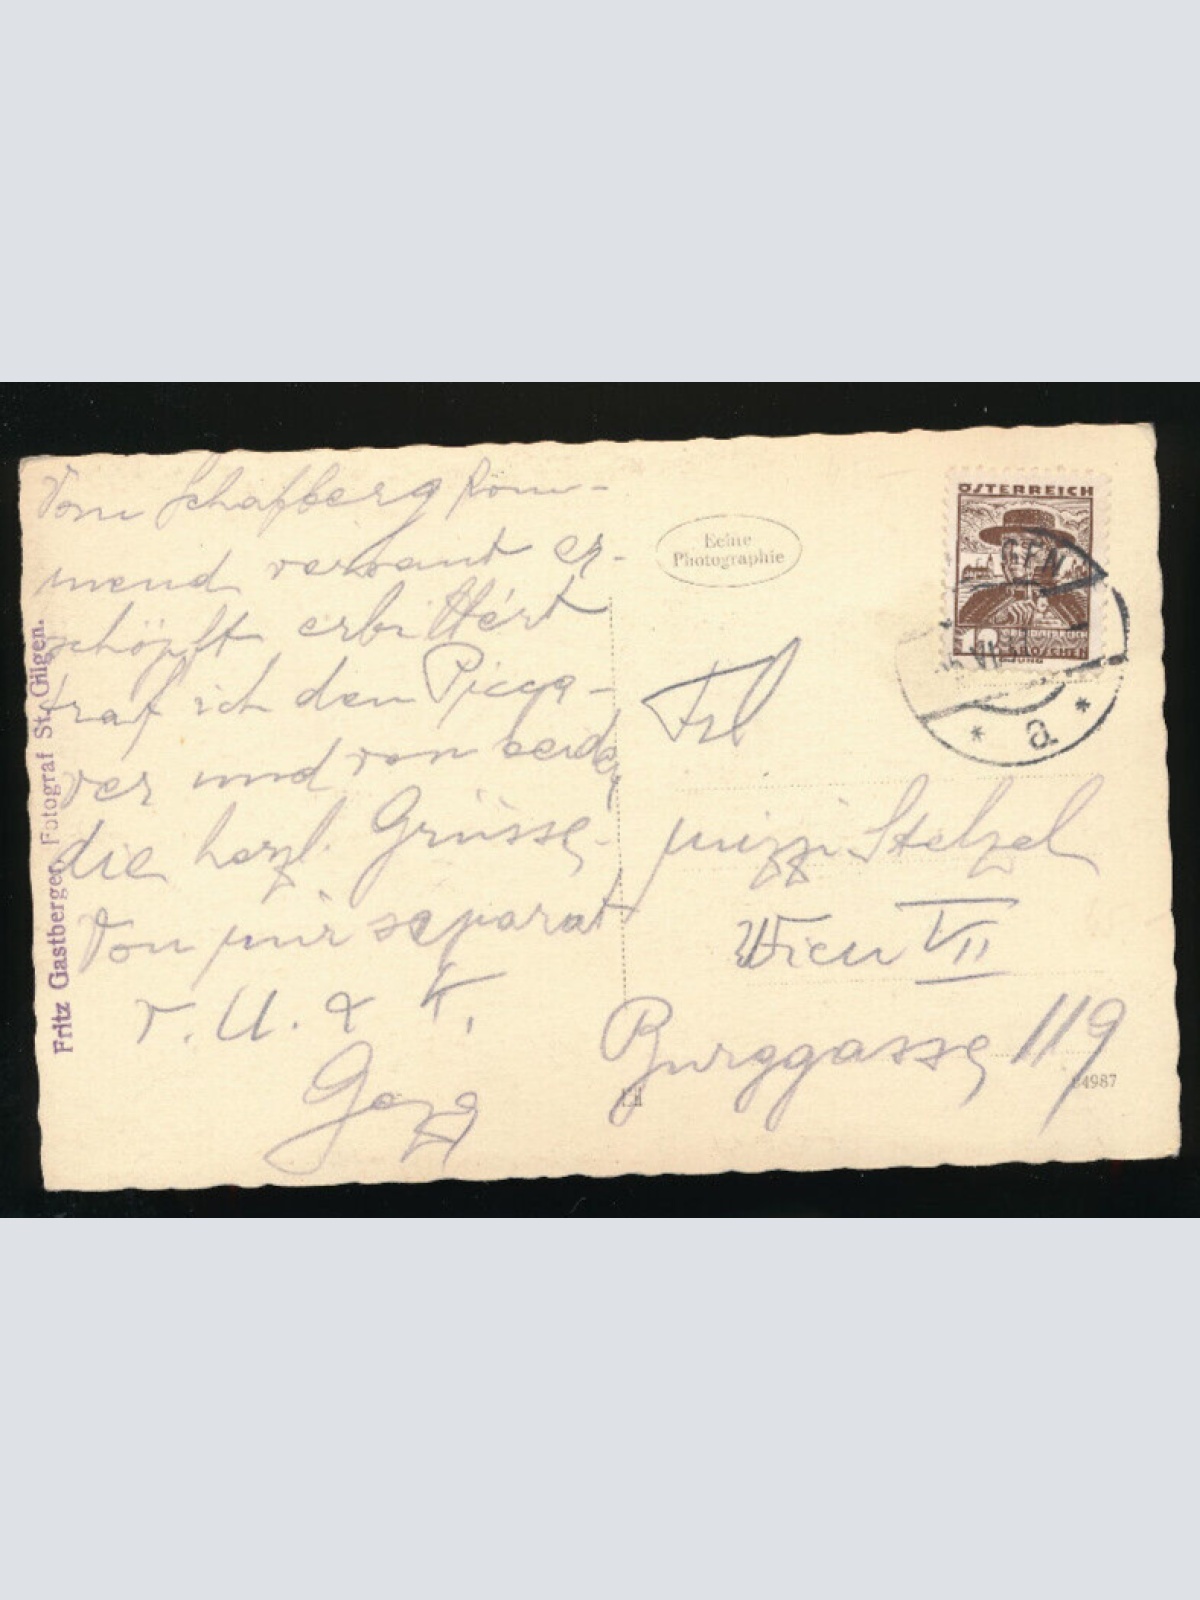 Vom Schafberg kom-
mend verbrannt er-
schöpft erbittert
traf ich den Picca-
ver und von beiden
die herzl. Grüsse.
Von mir separat
r. U. & K.
Geza
Fritz Gastberger, Fotograf St. Gilgen.
Echte
Photographie
ÖSTERREICH
GROSCHEN
GEN
VI
* a *
Frl
Mizzi Stelzel
Wien VII
Burggasse 119